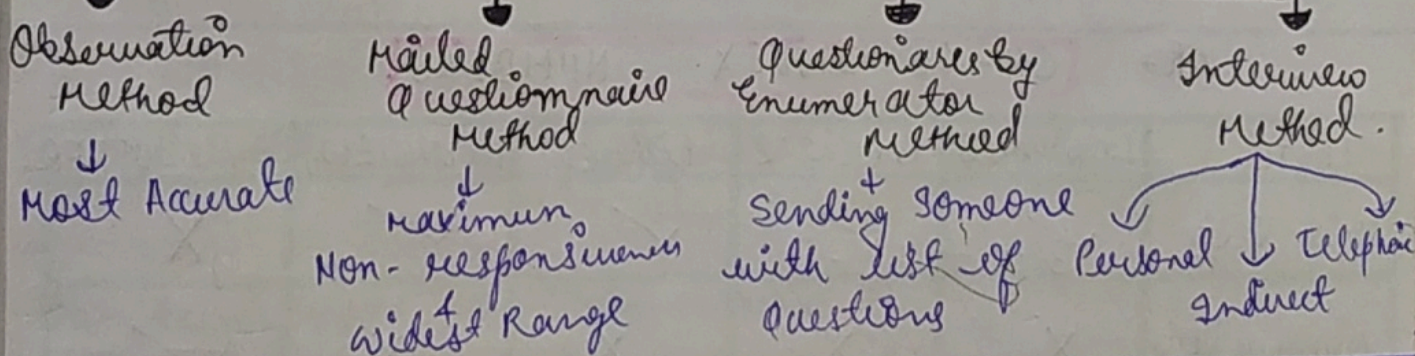 Observation
Method
Most Accurate
Mailed
Questionnaire
Method
Maximum
Non-responsiveness
+
Widest Range
Questionares by
Enumerator
Method
Sending Someone
with list of
Questions
Interview
Method.
Personal
Indirect
Telephoic